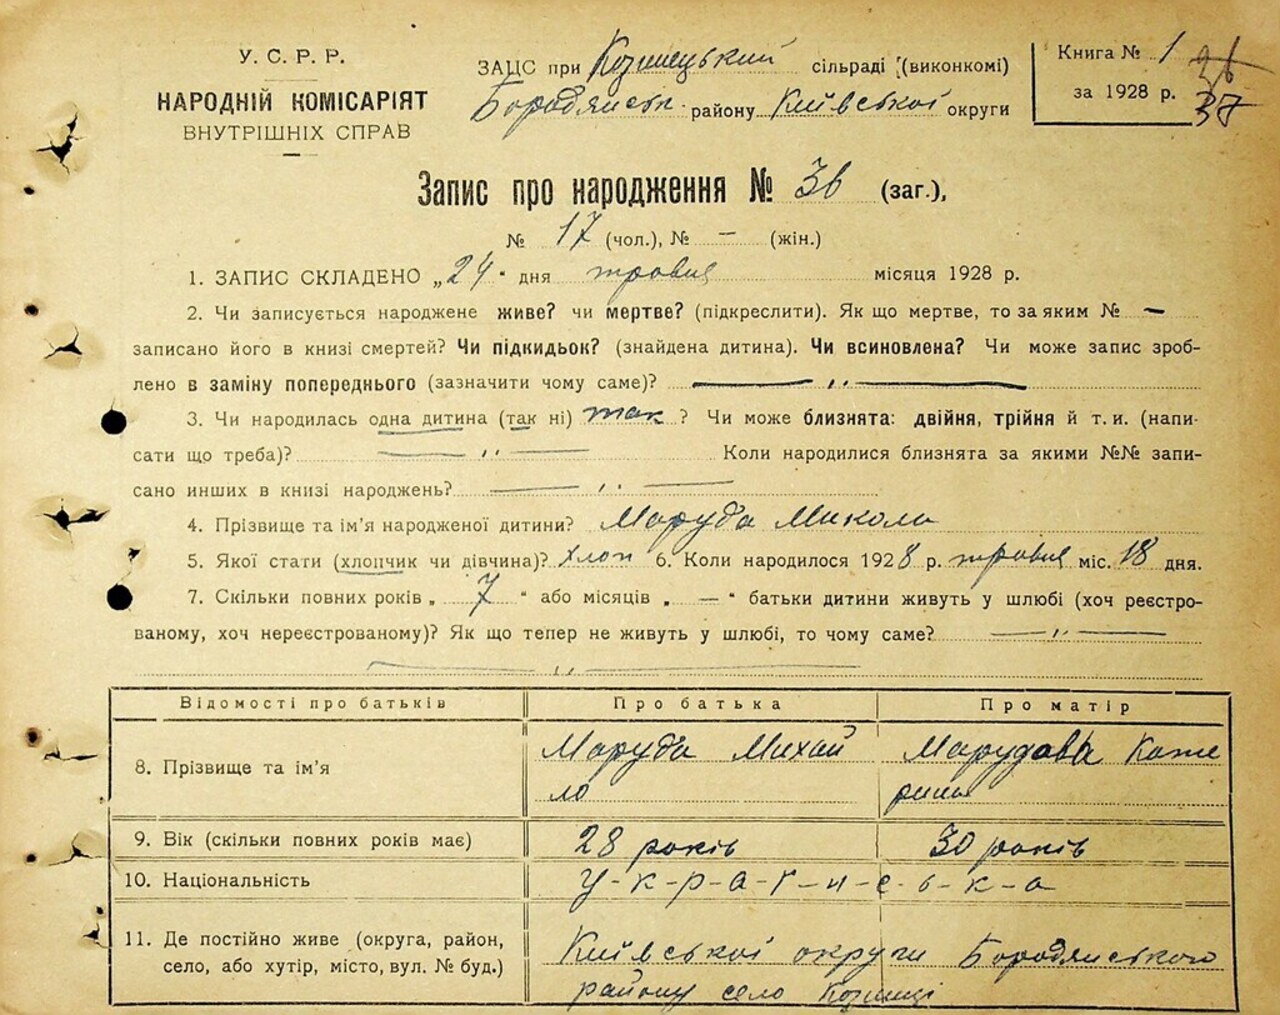 У. С. Р. Р.
НАРОДНІЙ КОМІСАРІЯТ
ВНУТРІШНІХ СПРАВ
ЗАЦС при Козинецький сільраді (виконкомі)
Бородянськ. району Київської округи
Книга № 1
за 1928 р. 37
Запис про народження № 36 (заг.),
№ 17 (чол.), № — (жін.)
1. ЗАПИС СКЛАДЕНО „24" дня травня місяця 1928 р.
2. Чи записується народжене живе? чи мертве? (підкреслити). Як що мертве, то за яким № —
записано його в книзі смертей? Чи підкидьок? (знайдена дитина). Чи всиновлена? Чи може запис зроб-
лено в заміну попереднього (зазначити чому саме)? — ,, —
3. Чи народилась одна дитина (так ні) так ? Чи може близнята: двійня, трійня й т. и. (напи-
сати що треба)? — ,, — Коли народилися близнята за якими №№ запи-
сано инших в книзі народжень? — ,, —
4. Прізвище та ім'я народженої дитини? Маруда Микола
5. Якої стати (хлопчик чи дівчина)? хлоп 6. Коли народилося 1928 р. травня міс. 18 дня.
7. Скільки повних років „ 7 " або місяців „ — " батьки дитини живуть у шлюбі (хоч реєстро-
ваному, хоч нереєстрованому)? Як що тепер не живуть у шлюбі, то чому саме? — ,, —
— ,, —
Відомості про батьків Про батька Про матір
8. Прізвище та ім'я Маруда Михай Марудова Кате
ло рина
9. Вік (скільки повних років має) 28 років 30 років
10. Національність У-к-р-а-ї-н-с-ь-к-а
11. Де постійно живе (округа, район, Київської округи Бородянського
село, або хутір, місто, вул. № буд.) району село Козинці